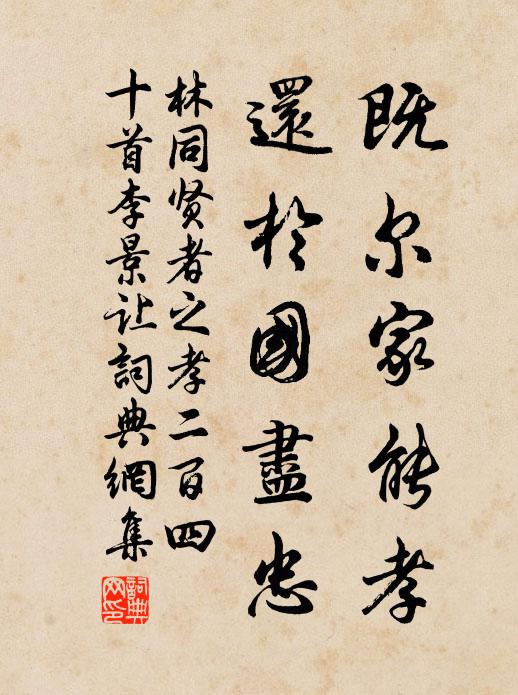 既尔家能孝
還於國盡忠
林同贤者之孝二百四
十首李景让詞典網集
詞典网印